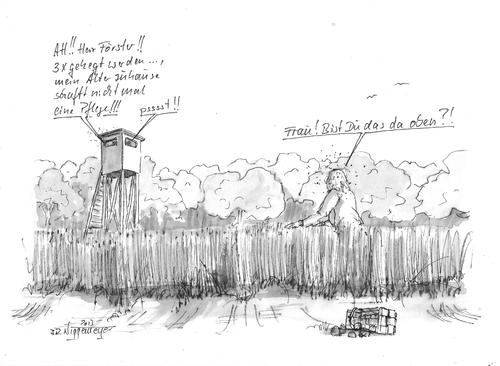 Ah!! Herr Förster!!
3x gehegt werden...,
mein Alter zuhause
schafft nicht mal
eine Pflege!!!
psssst!!
Frau! Bist Du das da oben?!
2012